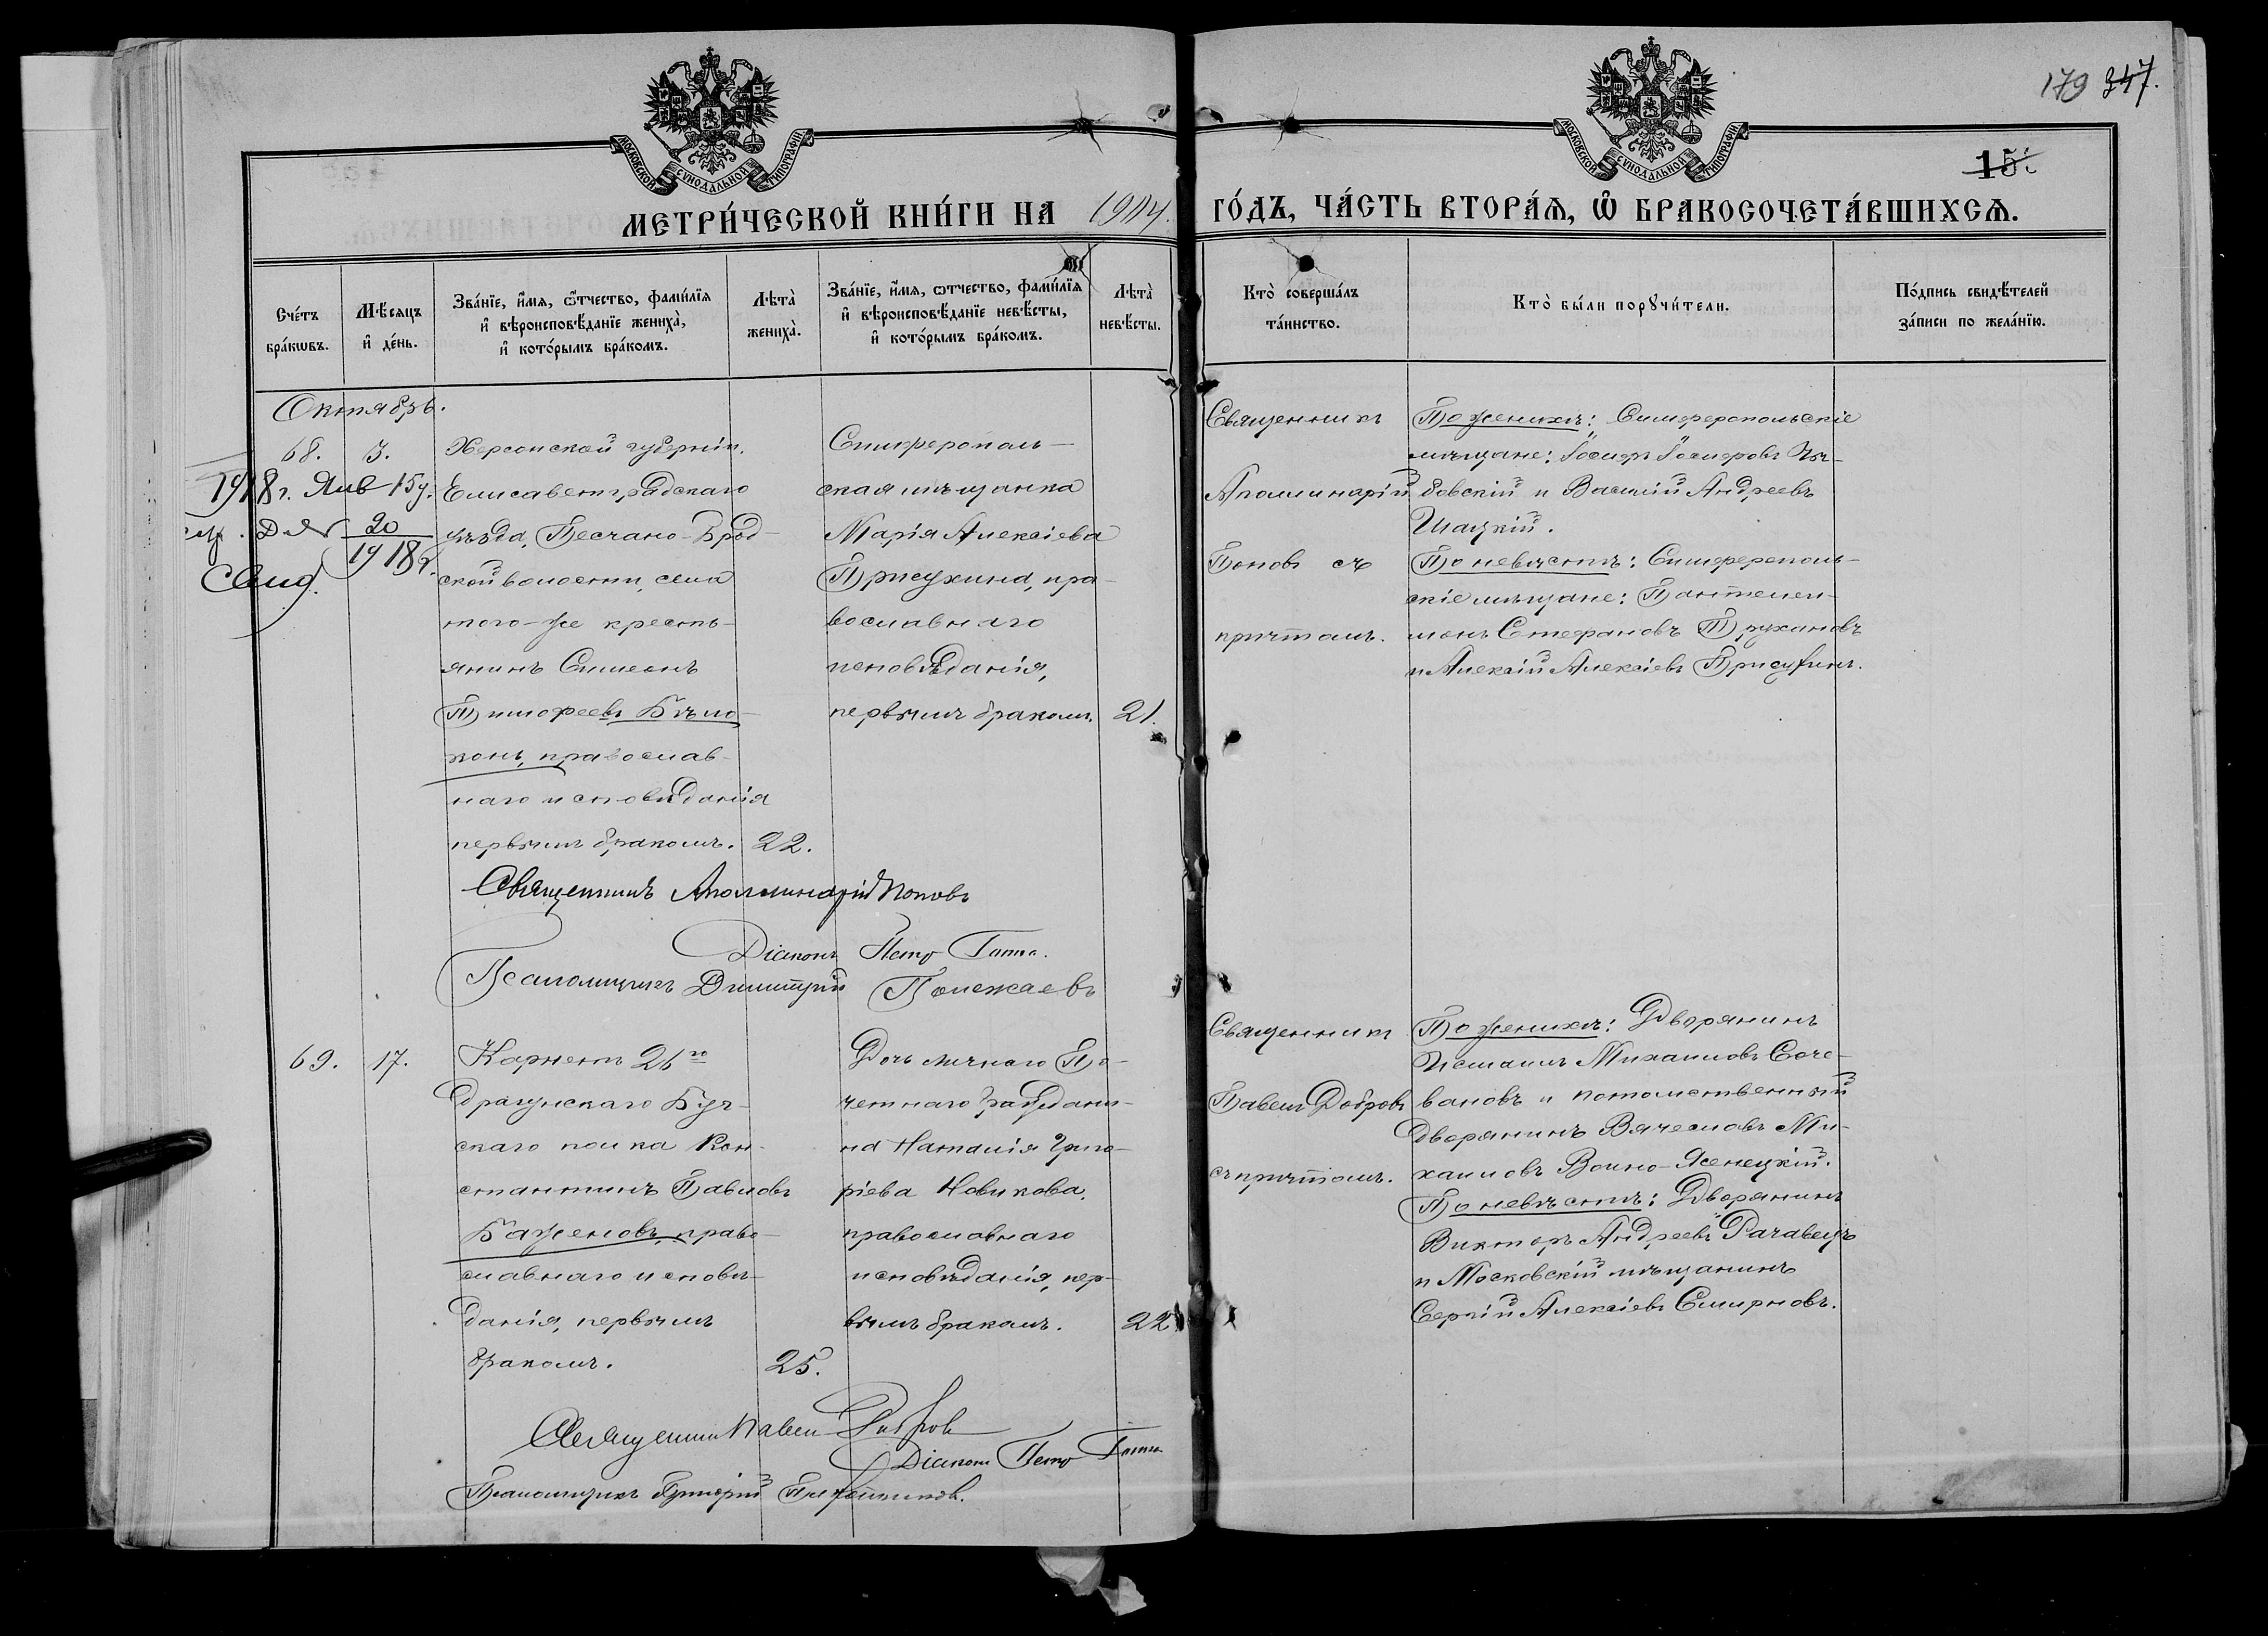 179 347.
15
МОСКОВСКОЙ СѴНОДАЛЬНОЙ ТИПОГРАФІИ
МОСКОВСКОЙ СѴНОДАЛЬНОЙ ТИПОГРАФІИ
МЕТРИ́ЧЕСКОЙ КНИ́ГИ НА 1914. ГО́ДЪ, ЧА́СТЬ ВТОРА́Ѧ, Ѡ҆ БРАКОСОЧЕТА́ВШИХСѦ.
Сче́тъ бра́кѡвъ.
Мѣ́сяцъ и҆ де́нь.
Зва́нїе, и҆́мѧ, ѻ҆́тчество, фами́лїѧ и҆ вѣроисповѣ́данїе жениха̀, и҆ кото́рымъ бра́комъ.
Лѣта̀ жениха̀.
Зва́нїе, и҆́мѧ, ѻ҆́тчество, фами́лїѧ и҆ вѣроисповѣ́данїе невѣ́сты, и҆ кото́рымъ бра́комъ.
Лѣта̀ невѣ́сты.
Кто̀ соверша́лъ та́инство.
Кто̀ бы́ли порꙋчи́тели.
По́дпись свидѣ́телей за́писи по жела́нїю.
Октябрь.
68. 3.
1918 г. Янв 15 д.
20
1918 г.
Свид.
Херсонской губерніи,
Елисаветградскаго
уѣзда, Песчано-Брод-
ской волости, села
того-же кресть-
янинъ Симеонъ
Тимофеевъ Бѣло-
конь, православ-
наго исповѣданія
первымъ бракомъ. 22.
Симферополь-
ская мѣщанка
Марія Алексіева
Присухина, пра-
вославнаго
исповѣданія,
первымъ бракомъ. 21.
Священникъ
Аполлинарій
Поповъ съ
причтомъ.
По женихѣ: Симферопольскіе
мѣщане: Іосифъ Іосифовъ
и Василій Андреевъ
Шацкій.
По невѣстѣ: Симферополь-
скіе мѣщане: Пантелеи-
монъ Стефановъ Трухановъ
и Алексій Алексіевъ Присухинъ.
Священникъ Аполлинарій Поповъ
Діаконъ Петръ
Псаломщикъ Димитрій Полежаевъ
69. 17.
Корнетъ 26го
драгунскаго Буг-
скаго полка Кон-
стантинъ Павловъ
Баженовъ, право-
славнаго исповѣ-
данія, первымъ
бракомъ. 25.
Дочь личнаго По-
четнаго Граждани-
на Наталія Григо-
ріева Новикова,
православнаго
исповѣданія, пер-
вымъ бракомъ. 22
Священникъ
Павелъ Добровъ
съ причтомъ.
По женихѣ: Дворянинъ
Измаилъ Михаиловъ Соче-
вановъ и потомственный
дворянинъ Вячеславъ Ми-
хаиловъ Войно-Ясенецкій.
По невѣстѣ: Дворянинъ
Викторъ Андреевъ
и Московскій мѣщанинъ
Сергій Алексіевъ Смирновъ.
Священникъ Павелъ Добровъ
Діаконъ Петръ
Псаломщикъ Григорій